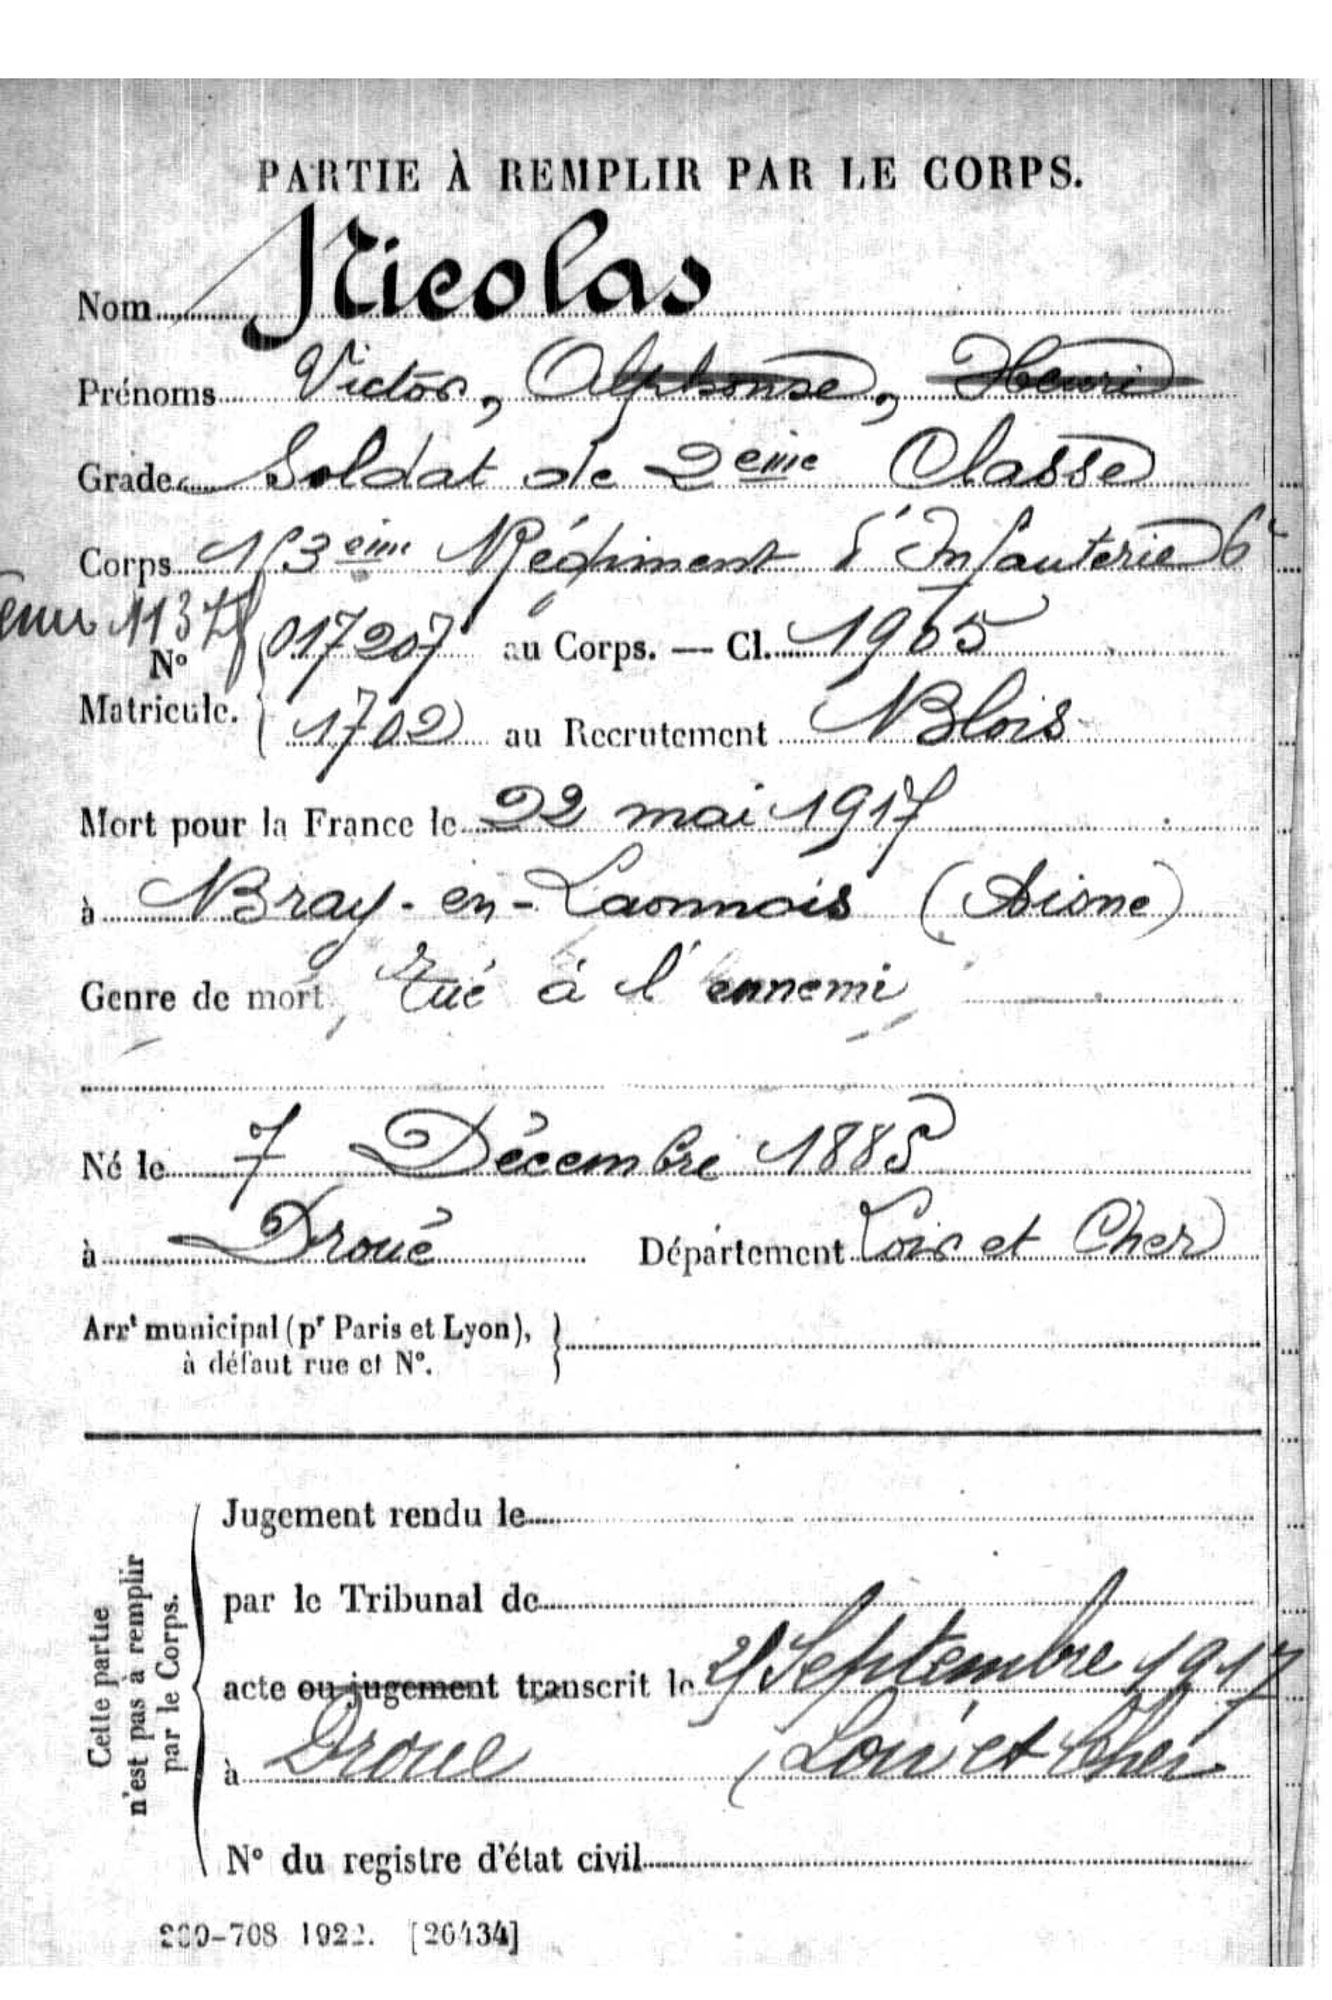 PARTIE À REMPLIR PAR LE CORPS.
Nom Nicolas
Prénoms Victor, Alphonse, Henri
Grade Soldat de 2ème Classe
Corps 113ème Régiment d'Infanterie
113
N° Matricule. 017207 au Corps. — Cl. 1905
1702 au Recrutement Blois
Mort pour la France le 22 mai 1917
à Bray-en-Laonnois (Aisne)
Genre de mort Tué à l'ennemi
Né le 7 Décembre 1885
à Droué Département Loir et Cher
Arrt municipal (pr Paris et Lyon),
à défaut rue et N°.
Cette partie
n'est pas à remplir
par le Corps.
Jugement rendu le
par le Tribunal de
acte ou jugement transcrit le Septembre 1917
à Droué (Loir et Cher
N° du registre d'état civil
-708 1922. [26434]